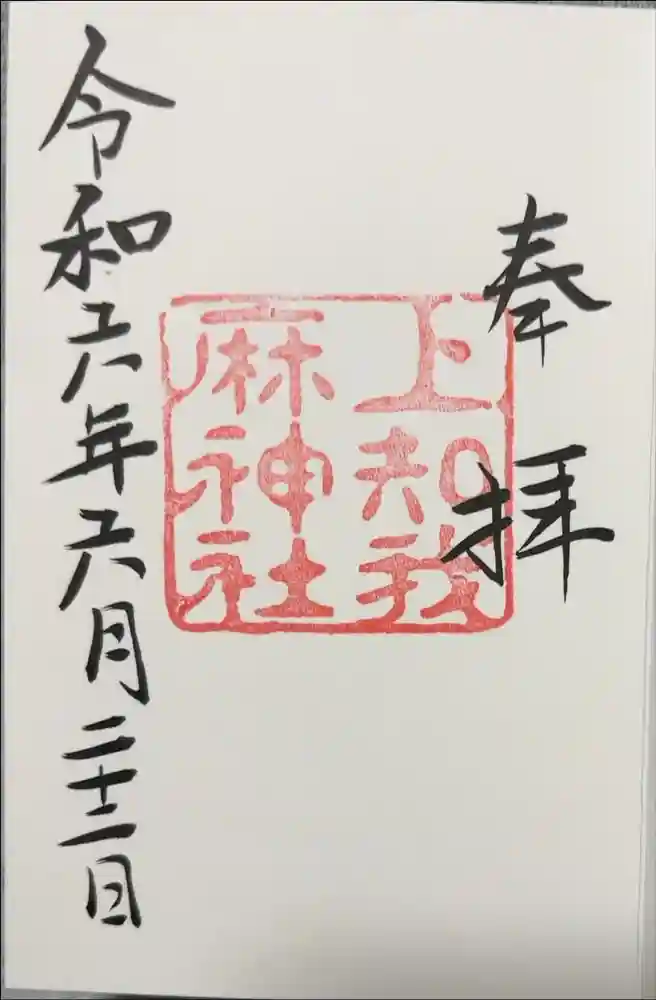 奉拝
上知我
麻神社
令和六年六月二十二日